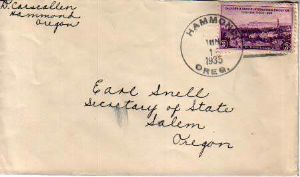 D. Carscallen
Hammond
Oregon
HAMMOND
1
1935
OREG.
Earl Snell
Secretary of State
Salem
Oregon